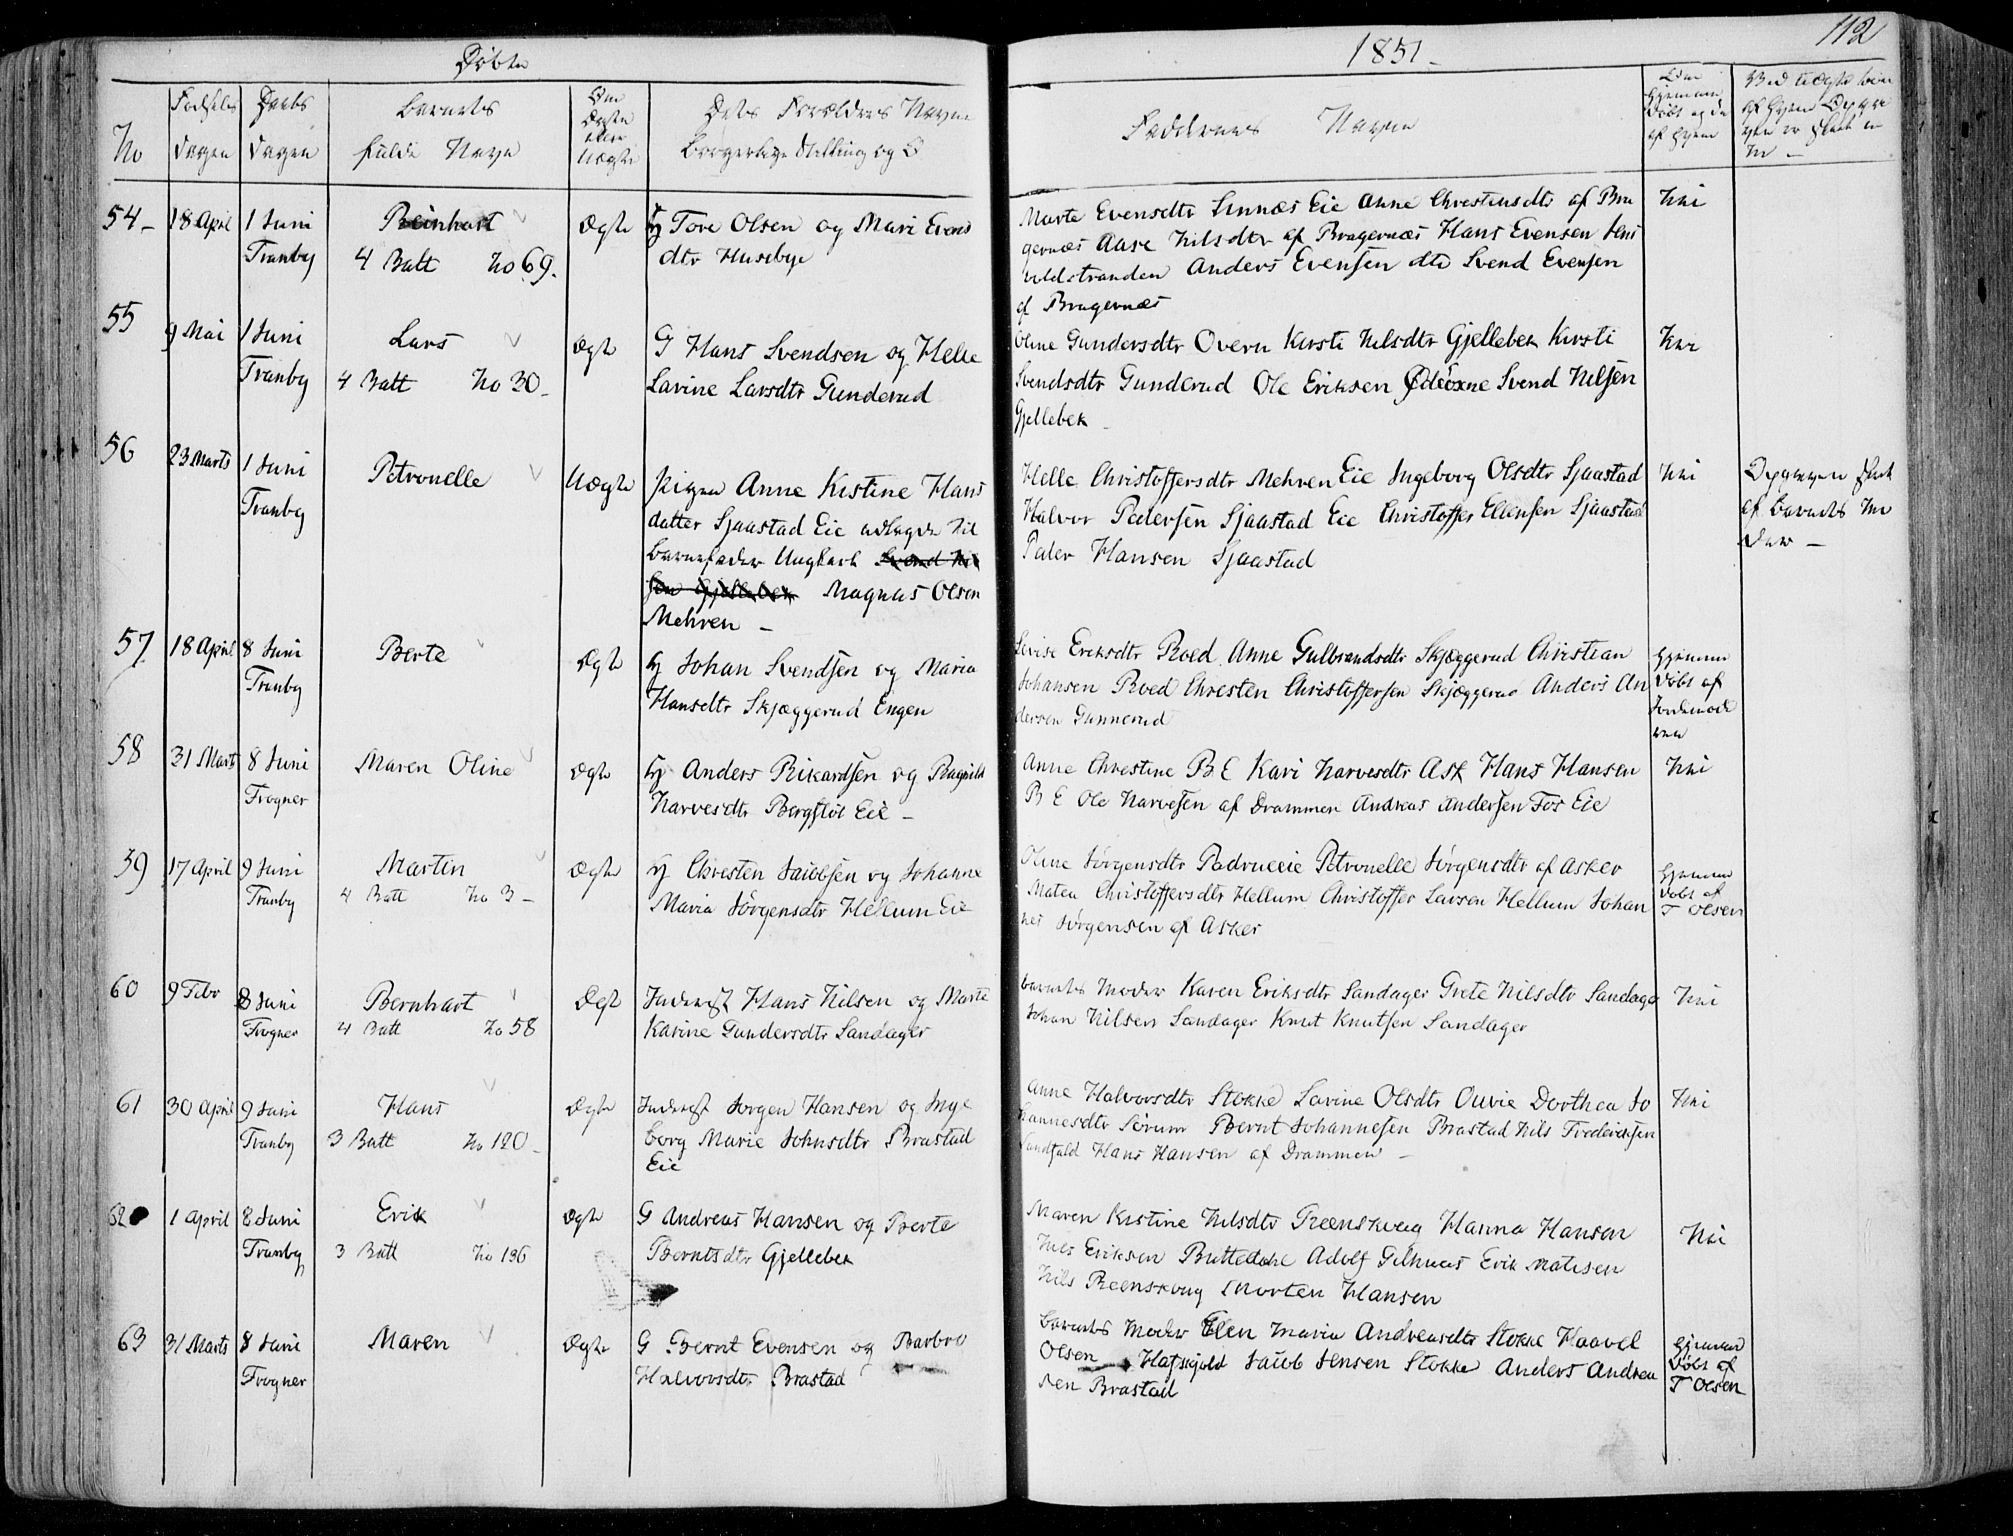 Døbte
No
Fødsels
Dagen
Daabs
Dagen
Barnets
fulde Navn
Om
Ægte
eller
Uægte
Dets Forældres Navne
Borgerlige Stilling og
54- 18 April 1 Juni Reinhart Ægte Tore Olsen og Mari Evens
Tranby 4 Batt No 69. dtr Husebye
55 9 Mai 1 Juni Lars Ægte G Hans Svendsen og Helle
Tranby 4 Batt No 30- Lavine Larsdtr Gunderud
56 23 Marts 1 Juni Petronelle Uægte Pigen Anne Kistine Hans
Tranby datter Sjaastad Eie udlagde til
Barnefader Ungkarl Svend Nil
sen Gjellebek Magnus Olsen
Mehren -
57 18 April 8 Juni Berte Ægte Johan Svendsen og Maria
Tranby Hansdtr Skjæggerud Engen
58 31 Marts 8 Juni Maren Oline Ægte Anders Rikardsen og Ragnild
Frogner Narvesdtr Bergfløt Eie -
59 17 April 9 Juni Martin Ægte Chresten Jacobsen og Johanne
Tranby 4 Batt No 3- Maria Jørgensdtr Hellum Eie
60 9 Febr 8 Juni Bernhart Ægt Inderst Hans Nilsen og Marte
Frogner 4 Batt No 58 Karine Gundersdtr Sandager
61 30 April 9 Juni Hans Ægte Inderst Jørgen Hansen og Inge
Tranby 3 Batt No 120- borg Marie Johnsdtr Brastad
Eie
62 1 April 8 Juni Erik Ægte G Andreas Hansen og Berte
Tranby 3 Batt No 136 Berntsdtr Gjellebek
63 31 Marts 8 Juni Maren Ægte G Bernt Evensen og Barbro
Frogner Halvorsdtr Brastad
1851.
112
Faddernes Navne
Om
Hjemme
Døbt og da
af hvem
Marte Evensdtr Linnæs Eie Anne Chrestensdtr af Bra Nei
gernæs Aase Nilsdtr af Bragernæs Hans Evensen
Anders Evensen dto Svend Evensen
af Bragernæs
Oline Gundersdtr Overn Kirsti Nilsdtr Gjellebek Kirsti Nei
Svendsdtr Gunderud Ole Eriksen Svend Nilsen
Gjellebek
Helle Christoffersdtr Mehren Eie Ingeborg Olsdtr Sjaastad Nei
Halvor Pedersen Sjaastad Eie Christoffer Ellensen Sjaastad af Barnets Mo
Peder Hansen Sjaastad der -
Lovise Eriksdtr Roed Anne Gulbrandsdtr Skjæggerud Christian Hjemme
Johansen Roed Chresten Christoffersen Skjæggerud Anders An døbt af
dersen Gunnerud Jordemode
ren
Anne Chrestine B E Kari Narvesdtr Ask Hans Hansen Nei
B E Ole Narvesen af Drammen Andreas Andersen Fos Eie
Oline Jørgensdtr Petronelle Jørgensdtr af Asker Hjemme
Matea Christoffersdtr Hellum Christoffer Larsen Hellum Johan døbt af
nes Jørgensen af Asker T Olsen
Barnets Moder Karen Eriksdtr Sandager Grete Nilsdtr Sandager Nei
Johan Nilsen Sandager Knut Knutsen Sandager
Anne Halvorsdtr Stokke Lavine Olsdtr Ouvie Dorthea Jo Nei
hannesdtr Sørum Bernt Johannesen Brastad Nils Frederiksen
Landfald Hans Hansen af Drammen -
Maren Kistine Nilsdtr Reenskoug Hanna Hansen Nei
Nils Eriksen Buttedahl Adolf Erik Matisen
Nils Reenskoug Morten Hansen
Barnets Moder Elen Maria Andreasdtr Stokke Haavel Hjemme
Olsen Hafskjold Jacob Jensen Stokke Anders Andrea døbt af
sen Brastad T Olsen